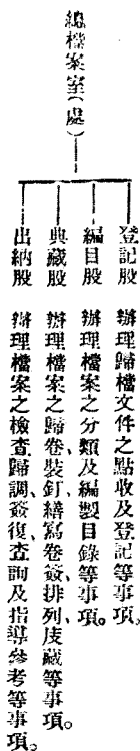 總檔案室(處)
登記股　辦理歸檔文件之點收及登記等事項。
編目股　辦理檔案之分類及編製目錄等事項。
典藏股　辦理檔案之歸卷、裝釘、繕寫卷簽、排列、庋藏等事項。
出納股　辦理檔案之檢查、歸調、簽復、查詢及指導參考等事項。